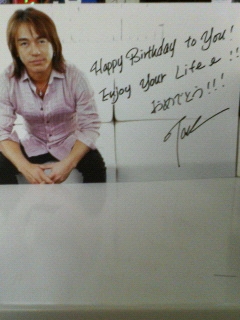 Happy Birthday to You!
Enjoy Your Life e !!
おめでとう!!!